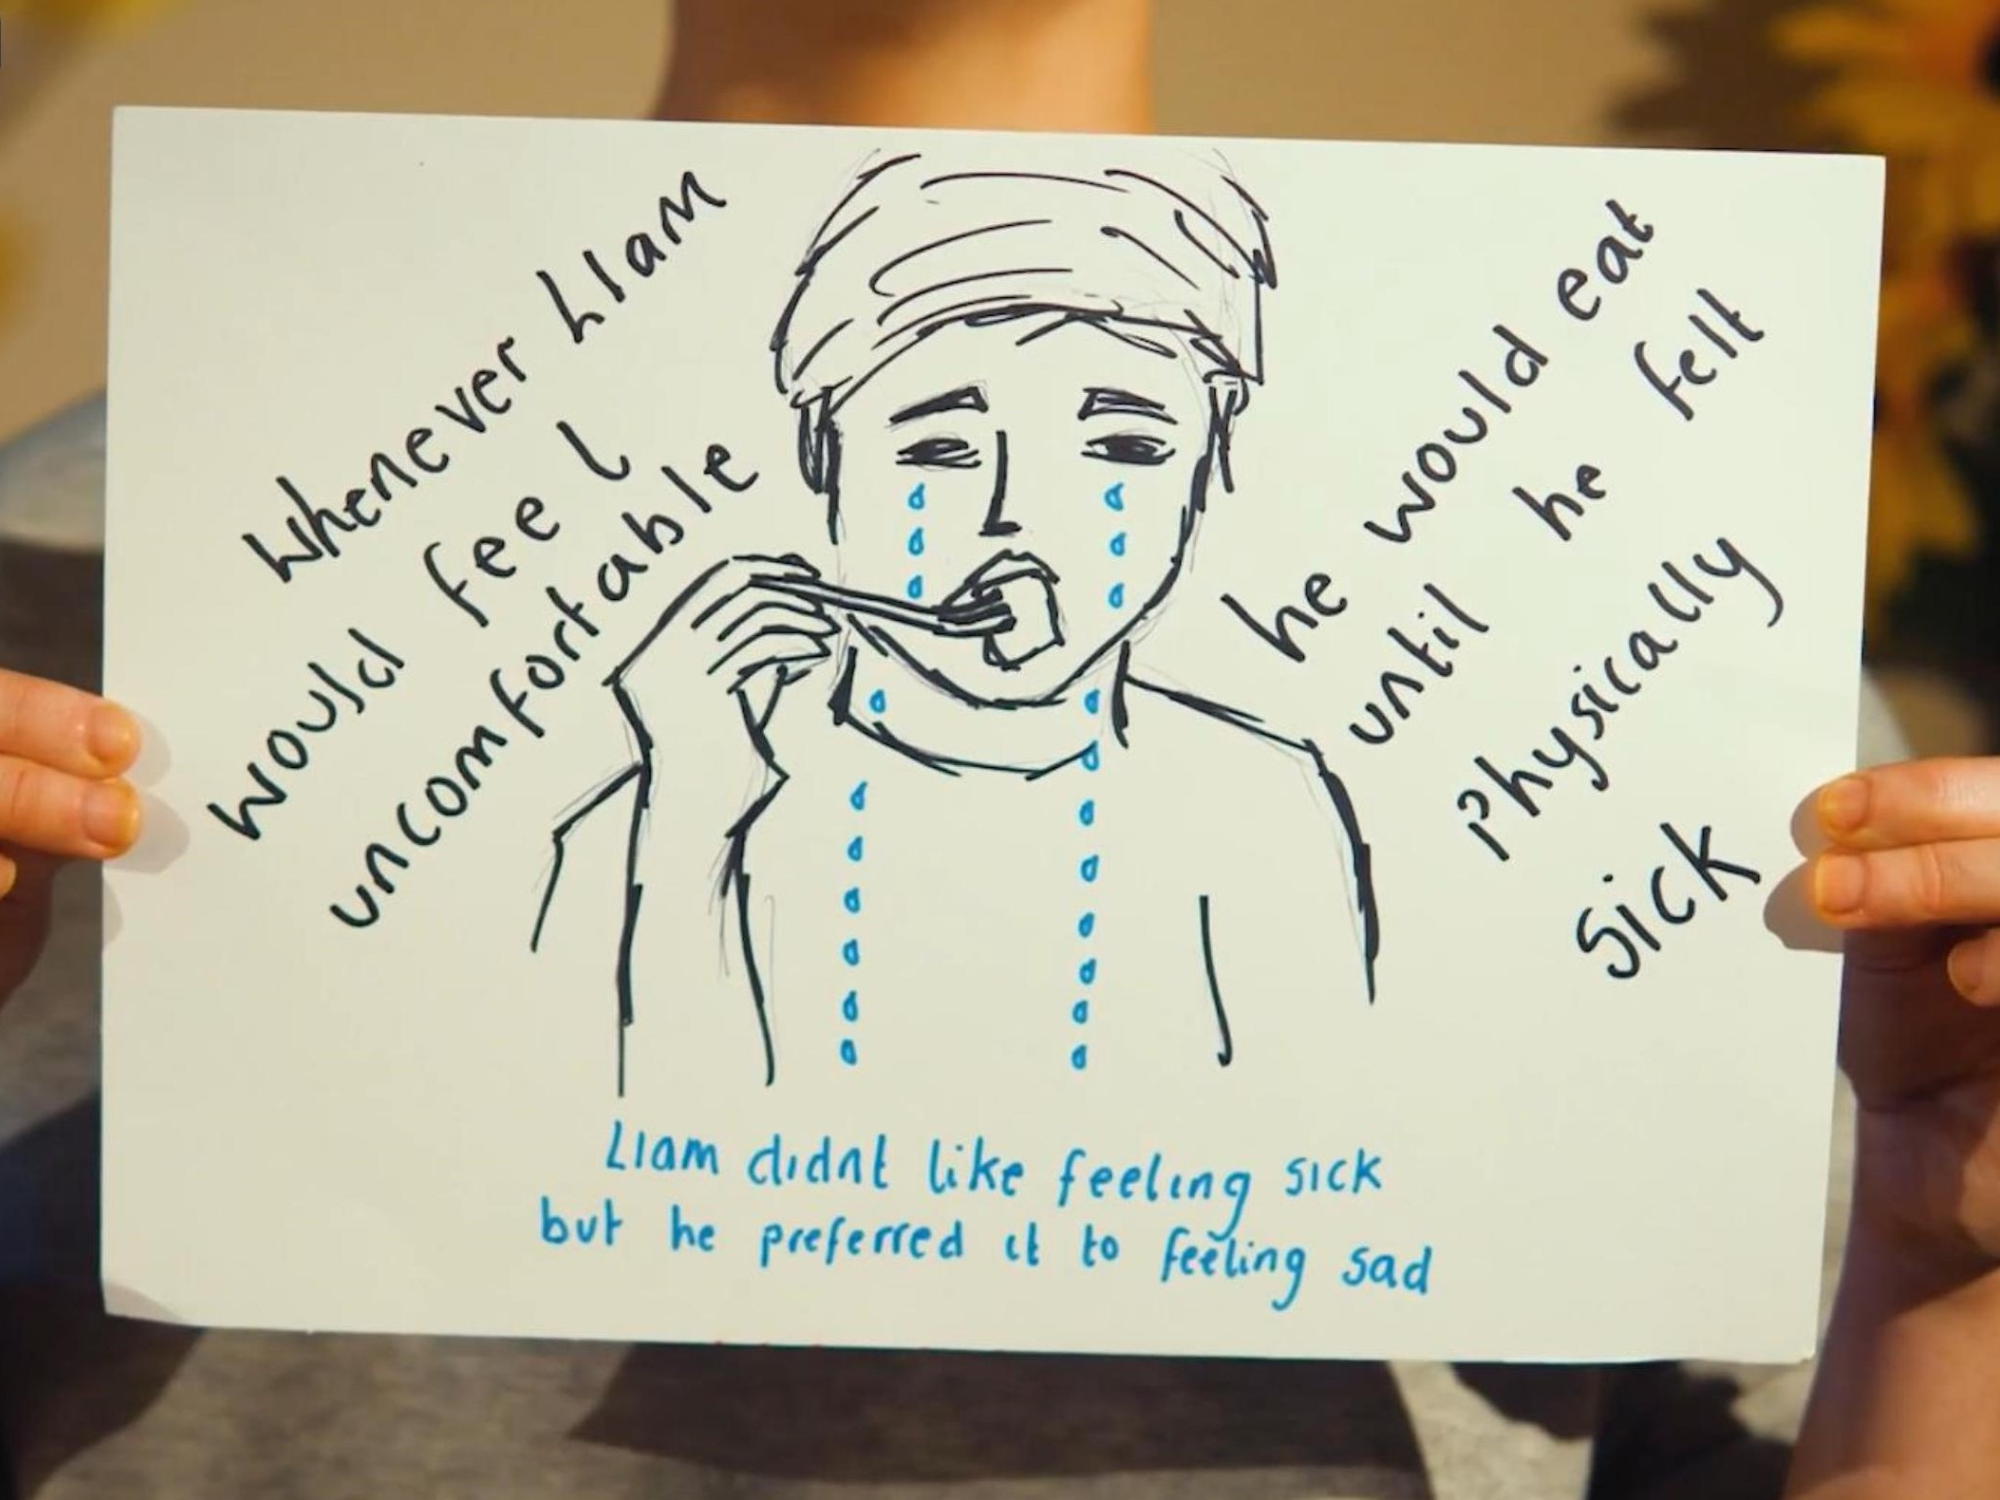 Whenever Liam
would feel
uncomfortable
he would eat
until he felt
Physically
Sick
Liam didnt like feeling sick
but he preferred it to feeling sad